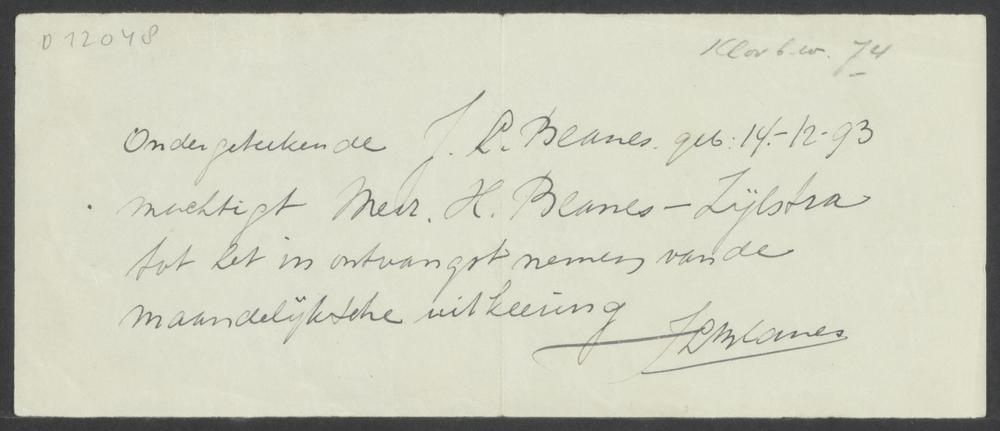 D 12048
74
Ondergeteekende J. L. Blanes. geb: 14.-12-93
machtigt Mevr. H. Blanes-Zijlstra
tot het in ontvangst nemen van de
maandelijksche uitkeering
JLBlanes